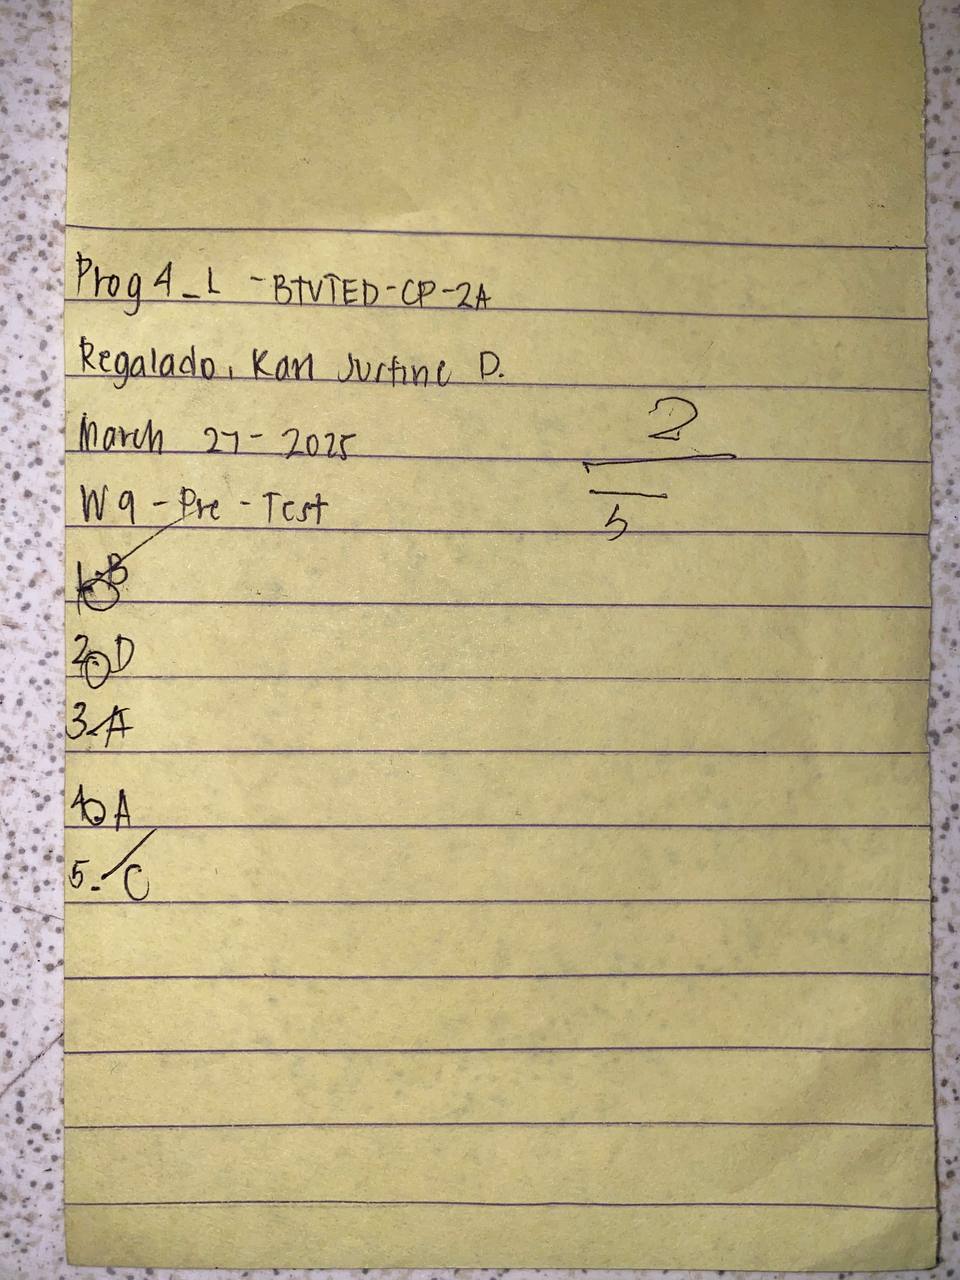 Prog 4_L - BTVTED-CP-2A
Regalado, Karl Justine D.
March 27- 2025
W9 - Pre - Test
2
5
1. B
2. D
3. A
4. A
5. C